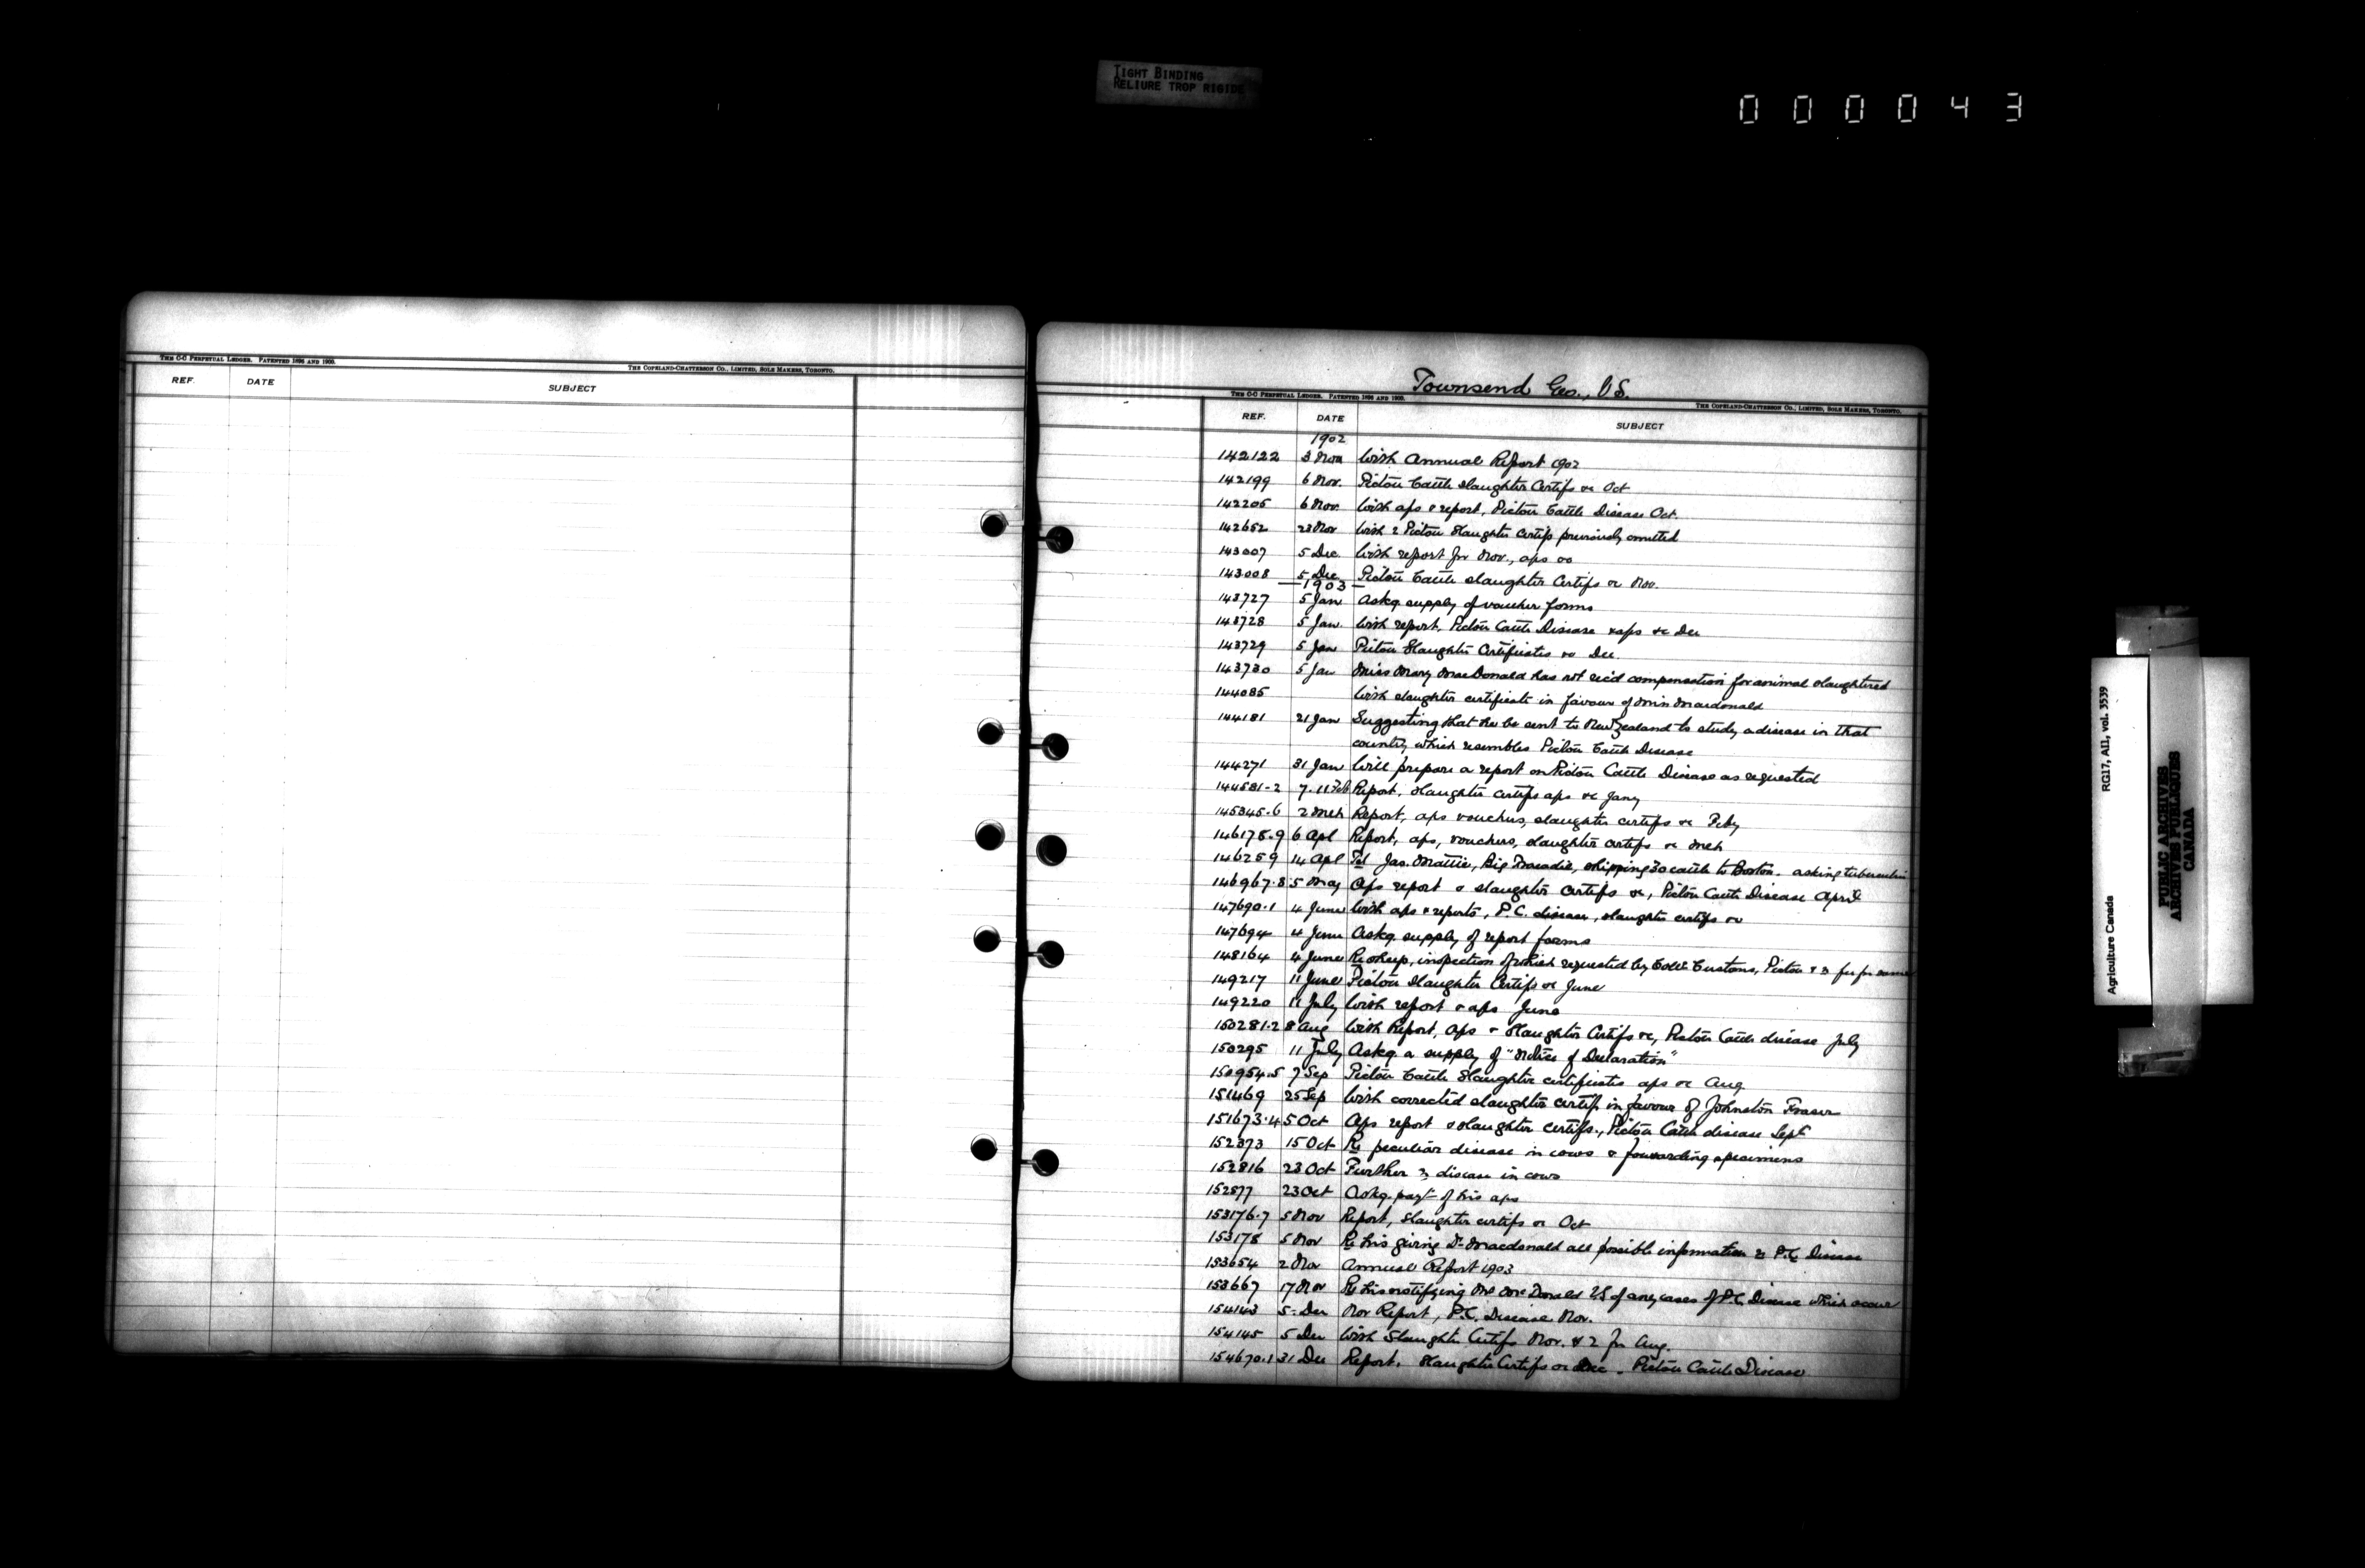 TIGHT BINDING
RELIURE TROP RIGIDE
000043
THE C-C PERPETUAL LEDGER. PATENTED 1896 AND 1900.
THE COPELAND-CHATTERSON CO., LIMITED, SOLE MAKERS, TORONTO.
REF. DATE SUBJECT
Townsend Geo., V.S.
THE C-C PERPETUAL LEDGER. PATENTED 1896 AND 1900.
THE COPELAND-CHATTERSON CO., LIMITED, SOLE MAKERS, TORONTO.
REF. DATE SUBJECT
1902
142122 3 Nov With Annual Report 1902
142199 6 Nov. Pictou Cattle Slaughter Certifs &c Oct
142205 6 Nov. With aps & report, Pictou Cattle Disease Oct.
142652 23 Nov With 2 Pictou Slaughter Certifs previously omitted
143007 5 Dec. With report for Nov., aps &c
143008 5 Dec. Pictou Cattle Slaughter Certifs &c Nov.
1903
143727 5 Jan Askg. supply of voucher forms
143728 5 Jan. With report, Pictou Cattle Disease & aps &c Dec
143729 5 Jan Pictou Slaughter Certificates &c Dec
143730 5 Jan Miss Mary MacDonald has not rec'd compensation for animal slaughtered
144085 With slaughter certificate in favour of Miss Macdonald
144181 21 Jan Suggesting that he be sent to New Zealand to study a disease in that
country which resembles Pictou Cattle Disease
144271 31 Jan Will prepare a report on Pictou Cattle Disease as requested
144581-2 7. 11 Feb Report, slaughter certifs aps &c Jany
145345.6 2 Mch Report, aps vouchers, slaughter certifs &c Feby
146178.9 6 Apl Report, aps, vouchers, slaughter certifs &c Mch
146259 14 Apl Tel Jas. Mattie, Big Tracadie, shipping 30 cattle to Boston. asking tuberculin
146967.8 5 May Aps report & slaughter certifs &c, Pictou Cattle Disease April
147690.1 4 June With aps & reports, P.C. disease, slaughter certifs &c
147694 4 June Askg. supply of report forms
148164 4 June Re sheep, inspection of which requested by Coll. Customs, Pictou & re fee for same
149217 11 June Pictou Slaughter Certifs &c June
149220 11 July With report & aps June
150281.2 8 Aug With Report, Aps & Slaughter Certifs &c, Pictou Cattle disease July
150295 11 July Askg. a supply of "Notices of Declaration"
150954.5 7 Sep Pictou Cattle Slaughter certificates aps &c Aug
151469 25 Sep With corrected slaughter certif. in favour of Johnston Fraser
151673.4 5 Oct Aps report & slaughter certifs., Pictou Cattle disease Sept
152373 15 Oct Re peculiar disease in cows & forwarding specimens
152816 23 Oct Further re disease in cows
152877 23 Oct Askg. payt of his aps
153176.7 5 Nov Report, slaughter certifs &c Oct
153178 5 Nov Re his giving Dr Macdonald all possible information re P.C. Disease
153654 2 Nov Annual Report 1903
153667 17 Nov Re his notifying Mr McDonald VS of any cases of P.C. Disease which occur
154143 5 Dec Nov Report, P.C. Disease Nov.
154145 5 Dec With Slaughter Certifs Nov. & 2 for Aug.
154670.1 31 Dec Report. Slaughter Certifs &c Dec. Pictou Cattle Disease
Agriculture Canada RG17, AII, vol. 3539
PUBLIC ARCHIVES
ARCHIVES PUBLIQUES
CANADA